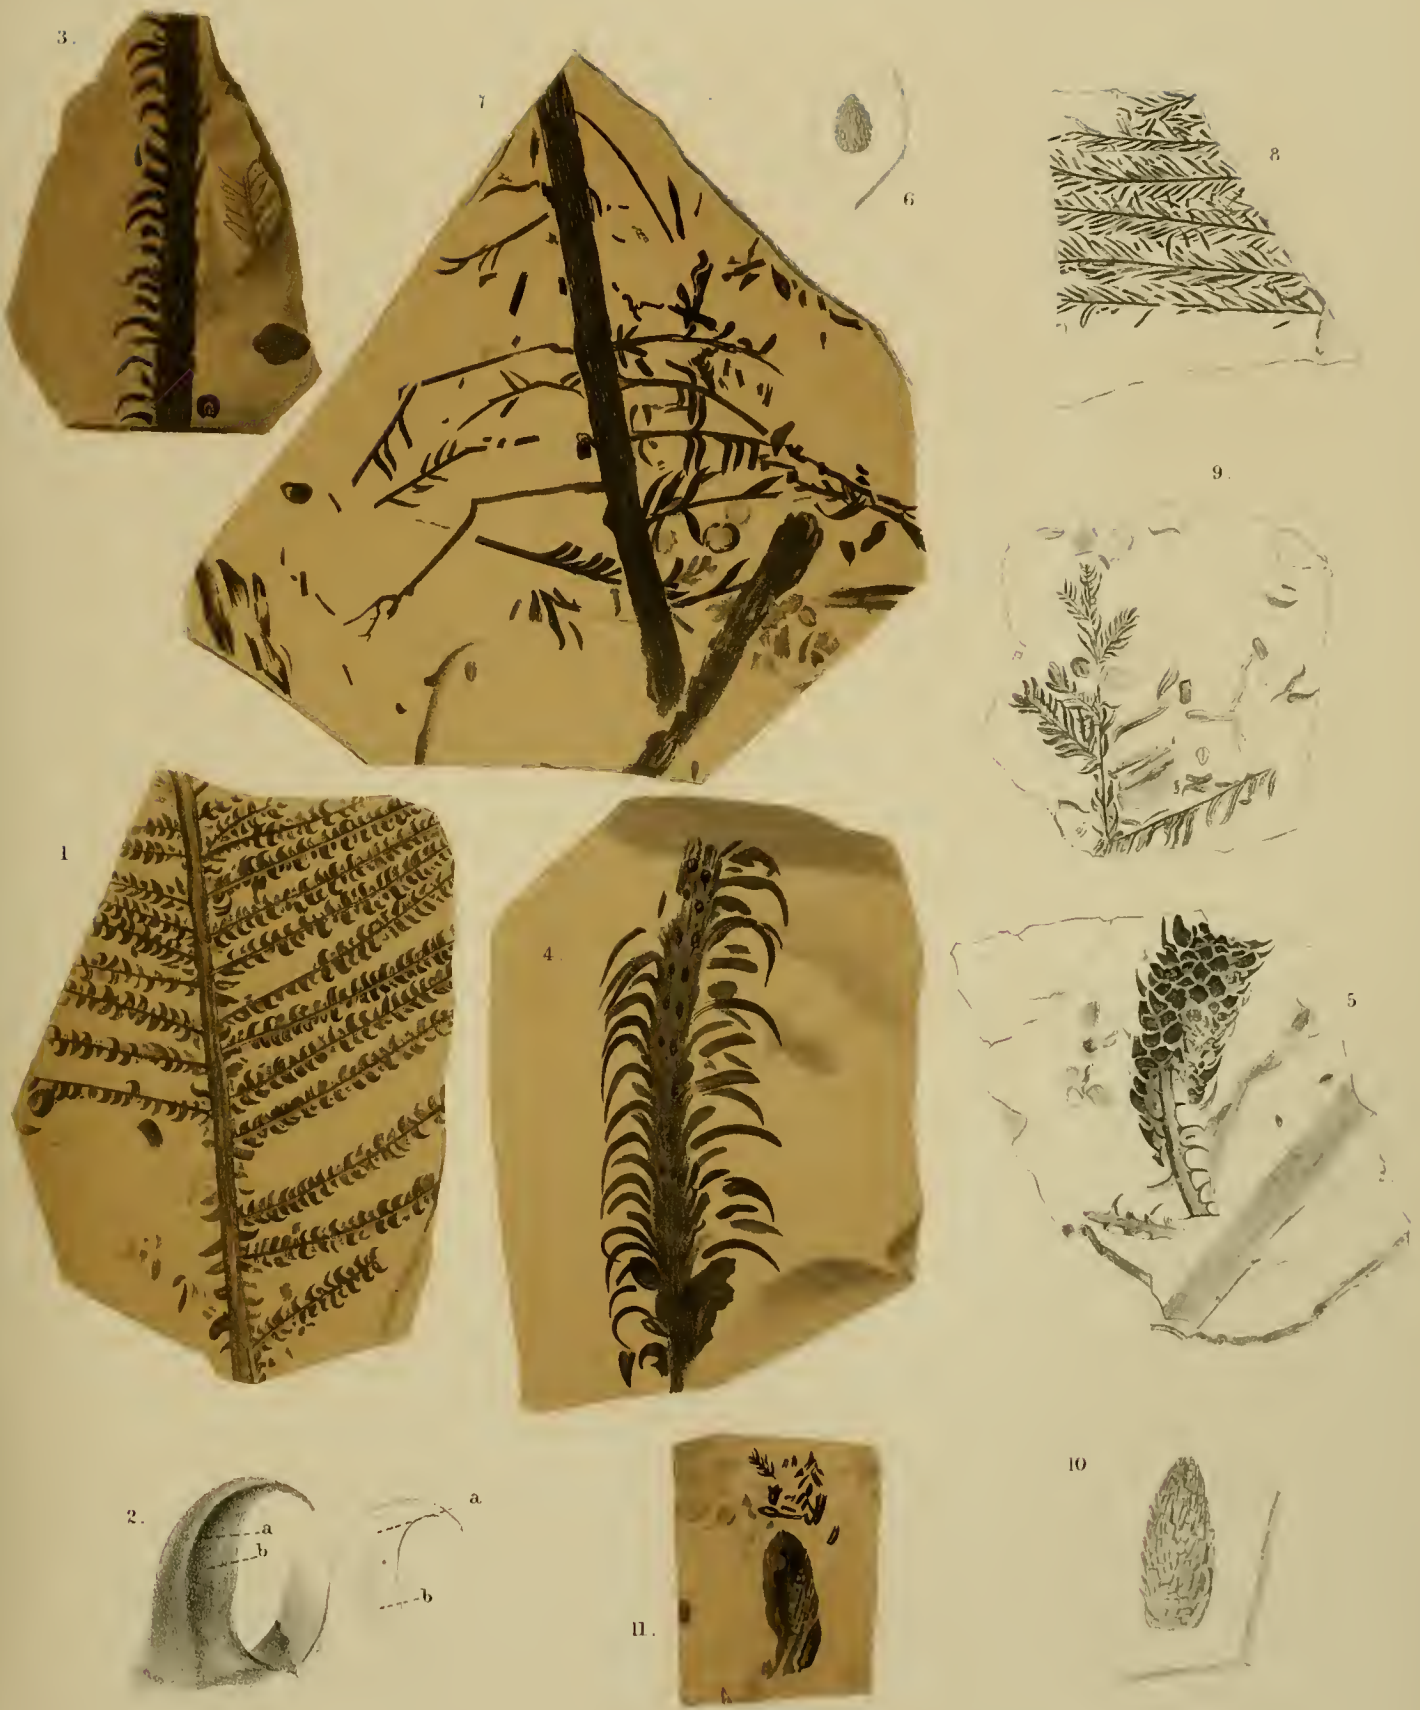 3.
7
6
8
9.
1
4.
5
2.
a
b
a
b
10
11.